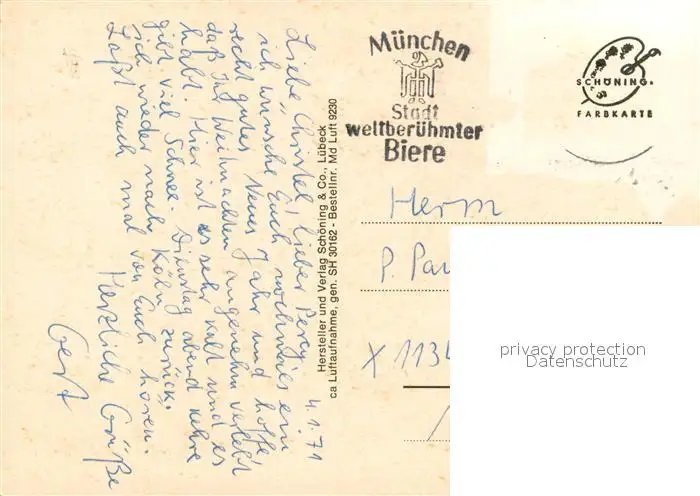 4.1.71
Liebe Christel, lieber Percy,
ich wünsche Euch nochmals ein
recht gutes Neues Jahr und hoffe,
daß Ihr Weihnachten angenehm verlebt
habt. Hier ist es sehr kalt und es
gibt viel Schnee. Dienstag abend kehre
ich wieder nach Köln zurück.
Laßt auch mal von Euch hören.
Herzliche Grüße
Gert
Hersteller und Verlag Schöning & Co., Lübeck
ca Luftaufnahme, gen. SH 30162 - Bestellnr. Md Luft 9230
München
Stadt
weltberühmter
Biere
SCHÖNING
FARBKARTE
Herrn
P. Pau
X 1134
privacy protection
Datenschutz